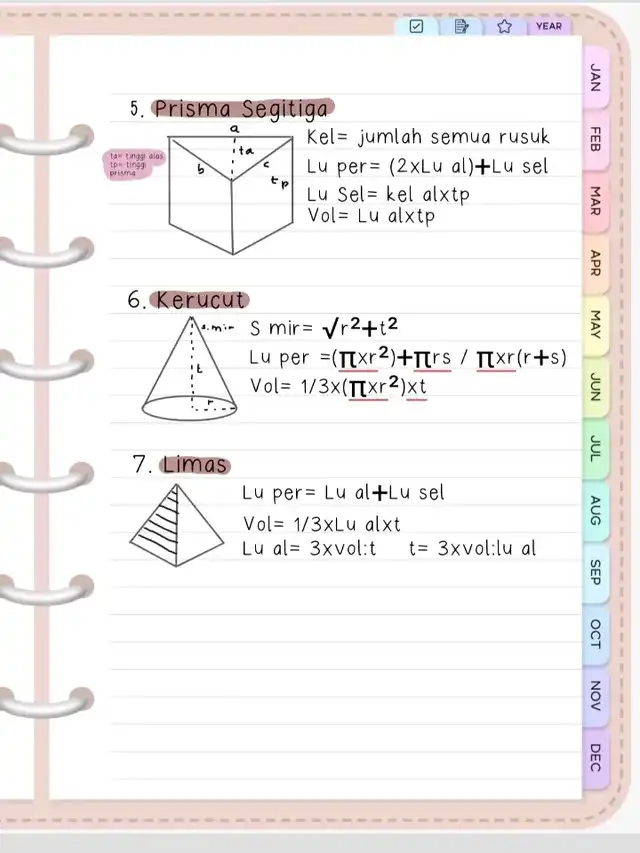 YEAR
JAN
FEB
MAR
APR
MAY
JUN
JUL
AUG
SEP
OCT
NOV
DEC
5. Prisma Segitiga
a
ta
b
c
tp
ta= tinggi alas
tp= tinggi
prisma
Kel= jumlah semua rusuk
Lu per= (2xLu al)+Lu sel
Lu Sel= kel alxtp
Vol= Lu alxtp
6. Kerucut
s.mir
t
r
S mir= √r²+t²
Lu per =(πxr²)+πrs / πxr(r+s)
Vol= 1/3x(πxr²)xt
7. Limas
Lu per= Lu al+Lu sel
Vol= 1/3xLu alxt
Lu al= 3xvol:t t= 3xvol:lu al